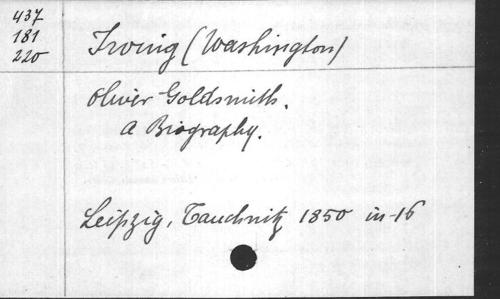 437
181
220
Irving (Washington)
Oliver Goldsmith.
a Biography.
Leipzig, Tauchnitz 1850 in-16